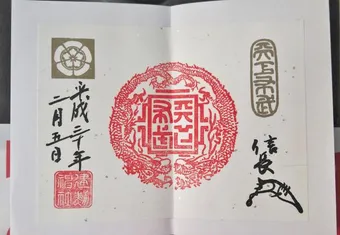 天下布武
信長
天下
布武
平成三十年
二月五日
建勲
神社